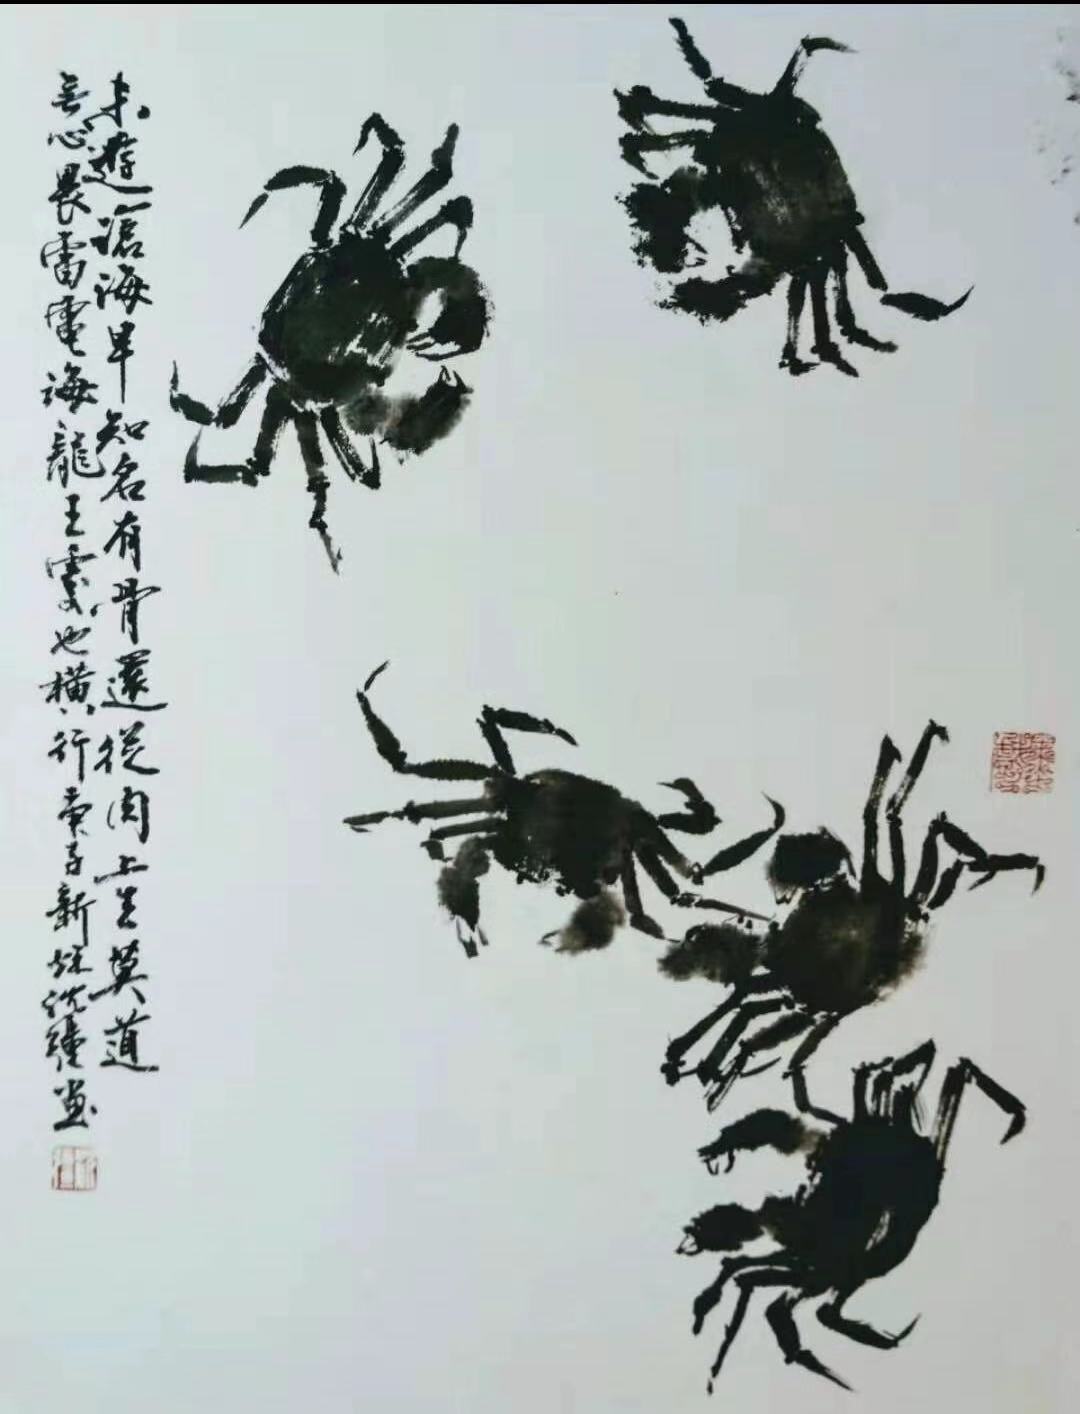 未遊滄海早知名有骨還從肉上生莫道
無心畏雷電海龍王處也橫行庚子新秋沈畫